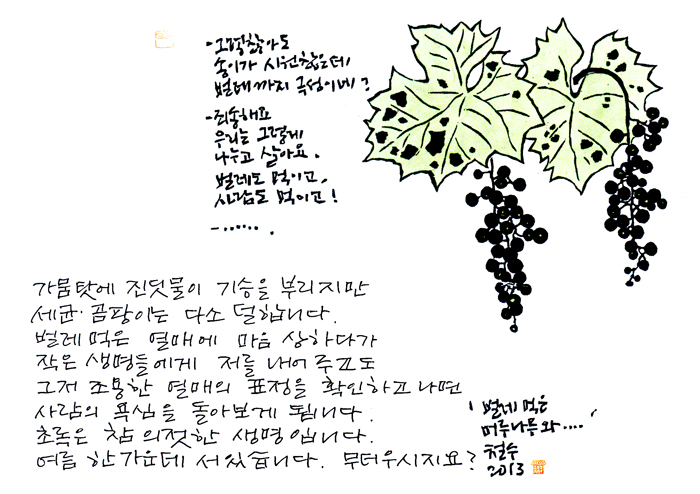 - 그렇찮아도
송이가 시원찮은데
벌레까지 극성이네?
- 죄송해요
우리는 그렇게
나누고 살아요.
벌레도 먹이고,
사람도 먹이고!
- ...... .
가뭄탓에 진딧물이 기승을 부리지만
세균·곰팡이는 다소 덜합니다.
벌레 먹은 열매에 마음 상하다가
작은 생명들에게 저를 내어 주고도
그저 조용한 열매의 표정을 확인하고 나면
사람의 욕심을 돌아보게 됩니다.
초록은 참 의젓한 생명입니다.
여름 한가운데 서있습니다. 무더우시지요?
' 벌레 먹은
머루나무와.... '
철수
2013